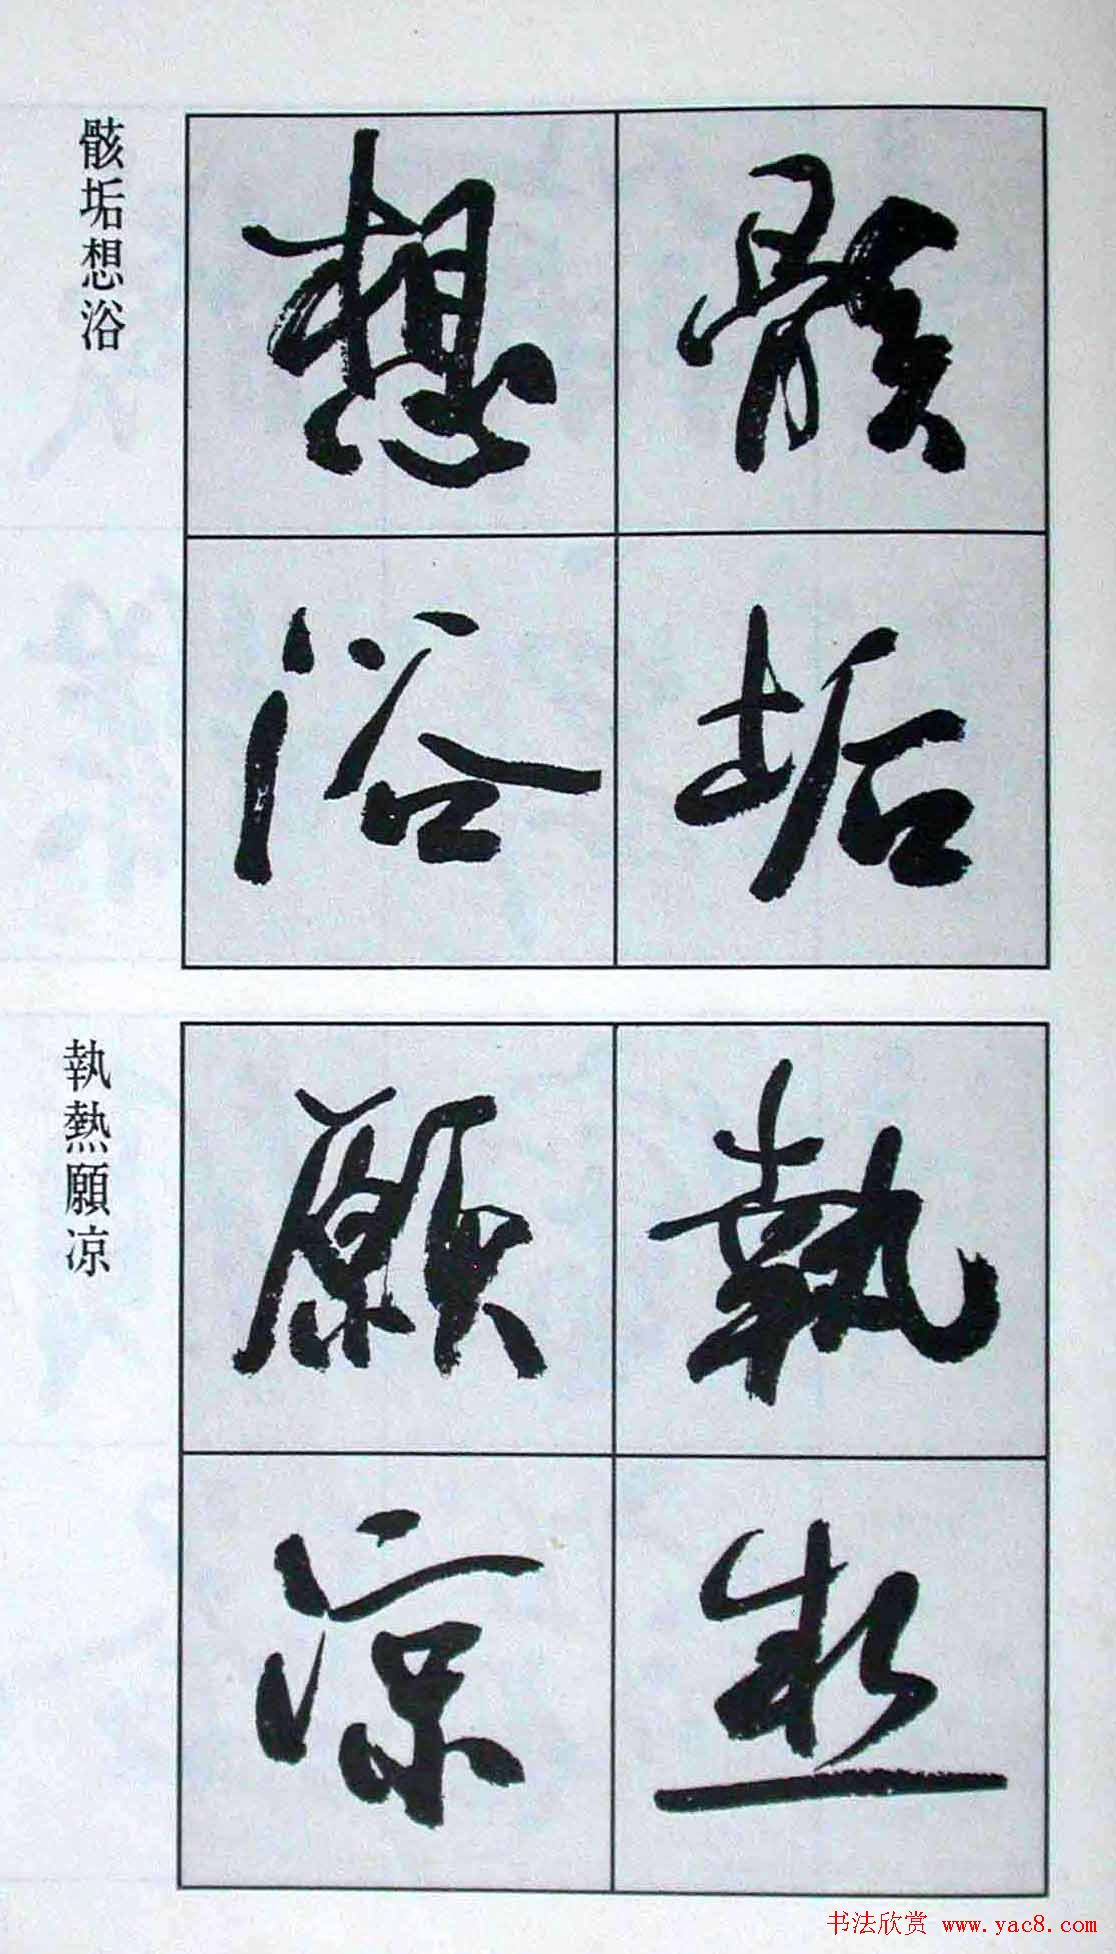 骸垢想浴
骸垢
想浴
執熱願凉
執熱
願凉
书法欣赏 www.yac8.com